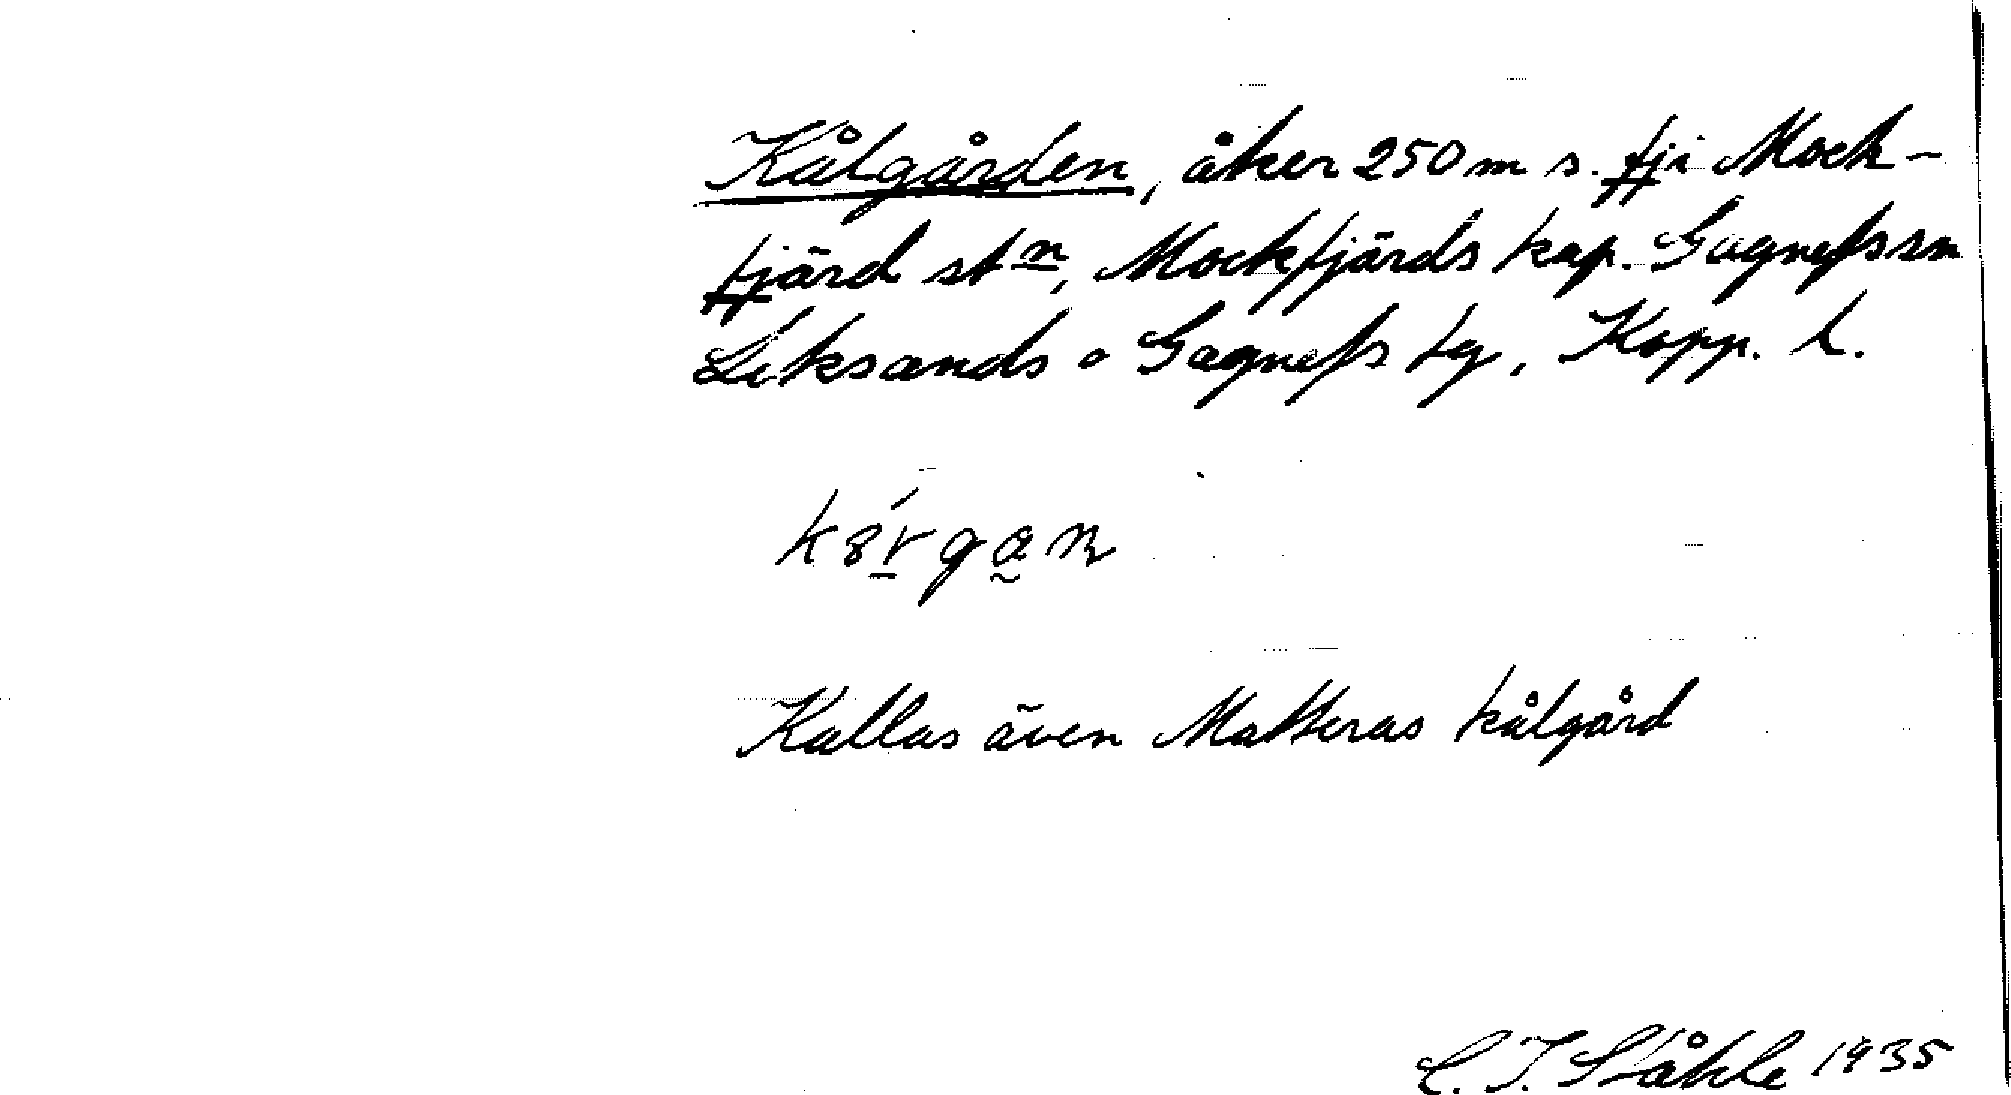 Kålgården, åker 250 m s. fji Mock-
fjärd stn, Mockfjärds kap. Gagnefs sn
Leksands o Gagnefs tg, Kopp. l.
Kallas även Matteras kålgård
C. I. Ståhle 1935